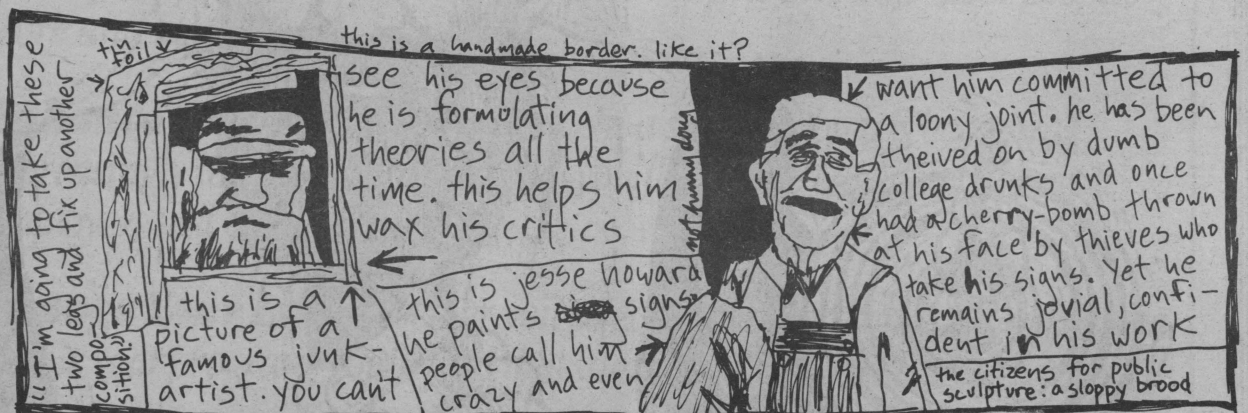 this is a handmade border. like it?
tin
foil
"I'm going to take these
two legs and fix up another
compo-
sition."
this is a
picture of a
famous junk-
artist. you can't
see his eyes because
he is formulating
theories all the
time. this helps him
wax his critics
this is jesse howard
he paints signs.
people call him
crazy and even
want him committed to
a loony joint. he has been
theived on by dumb
college drunks and once
had a cherry-bomb thrown
at his face by thieves who
take his signs. yet he
remains jovial, confi-
dent in his work
not hunny dory
the citizens for public
sculpture: a sloppy brood